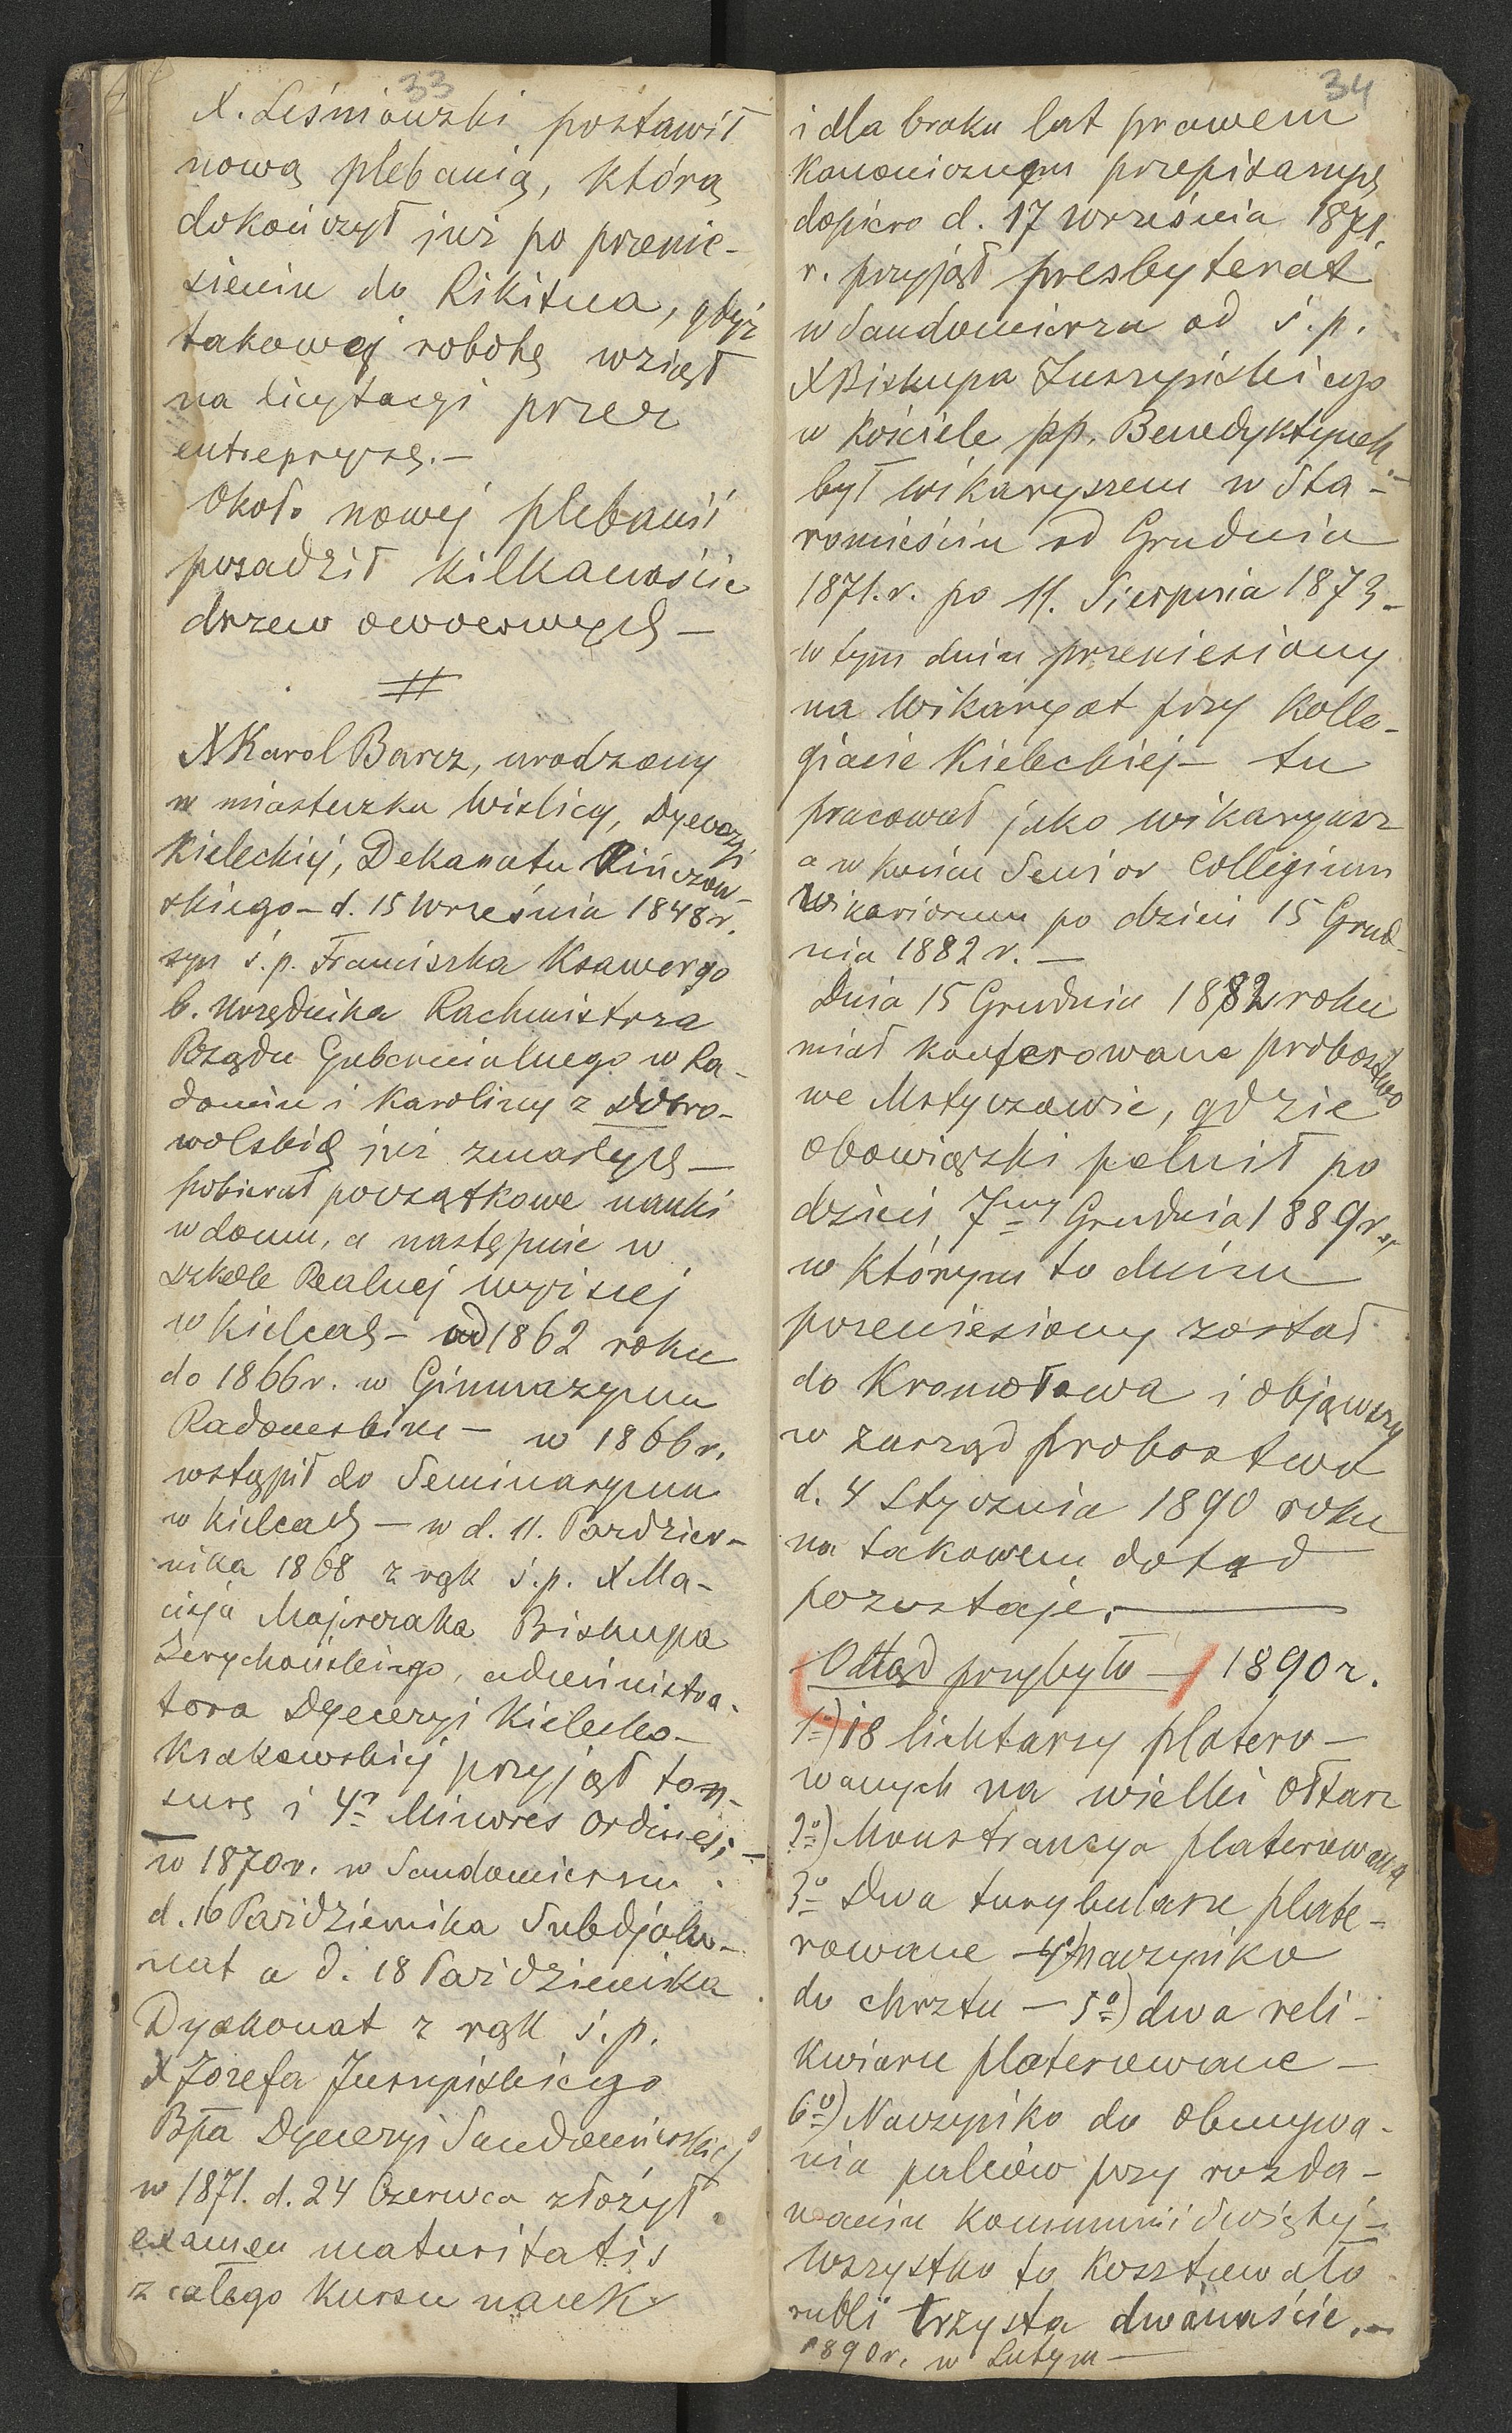 33
X. Leśniowski postawił
nową plebanią, którą
dokończył już po przenie-
sieniu do Rikitna, gdyż
takowej robotę wziął
na licytacyi przez
entrepryzę.—
Około nowej plebanii
posadził kilkanaście
drzew owocowych —
#
X Karol Barcz, urodzony
w miasteczku Wiślicy, Dyecezyi
Kieleckiej, Dekanatu Pińczow-
skiego – d. 15 Września 1848 r.
syn ś.p. Franciszka Ksawerego
b. Urzędnika Rachmistrza
Rządu Gubernialnego w Ra-
domiu i Karoliny z Dobro-
wolskich już zmarłych —
pobierał początkowe nauki
w domu, a następnie w
szkole Realnej wyższej
w Kielcach – od 1862 roku
do 1866 r. w Gimnazyum
Radomskim — w 1866 r.
wstąpił do Seminaryum
w Kielcach — w d. 11. Paździer-
nika 1868 z rąk ś.p. X Ma-
cieja Majerczaka Biskupa
Jerychońskiego, administra-
tora Dyecezyi Kielecko-
Krakowskiej przyjął ton-
surę i 4r Minores Ordines; —
w 1870 r. w Sandomierzu
d. 16 Października Subdjako-
nat a d. 18 Października
Dyakonat z rąk ś.p.
X Józefa Juszyńskiego
Bpa Dyecezyi Sandomierskiej
w 1871. d. 24 Czerwca złożył
examen maturitatis
z całego kursu nauk
34
i dla braku lat prawem
kanonicznym przepisanych
dopiero d. 17 Września 1871.
r. przyjął presbyterat
w Sandomierzu od ś.p.
X Biskupa Juszyńskiego
w kościele pp. Benedyktynek
był wikaryszem w Sta-
romieściu od Grudnia
1871. r. po 11. Sierpnia 1873 –
w tym dniu przeniesiony
na Wikaryat przy Kolle-
giacie Kieleckiej – tu
pracował jako wikaryusz
a w końcu Senior Collegium
Wikariorum po dzień 15 Grud-
nia 1882 r. —
Dnia 15 Grudnia 1882 roku
miał konferowane probostwo
we Mstyczowie, gdzie
obowiązki pełnił po
dzień 7my Grudnia 1889 r.,
w którym to dniu
przeniesiony został
do Kromołowa i objąwszy
w zarząd probostwo
d. 4 Stycznia 1890 roku
na takowem dotąd
pozostaje. —
Odtąd przybyło — 1890 r.
1o) 18 lichtarzy platero-
wanych na wielki ołtarz
2o) Monstrancya platerowana
3o Dwa turybularze plate-
rowane — 4o) naczynko
do chrztu — 5o) dwa reli-
kwiarze platerowane —
6o) Naczynko do obmywa-
nia palców przy rozda-
waniu kommunii Świętej —
Wszystko to kosztowało
rubli trzysta dwanaście. —
1890 r. w Lutym —